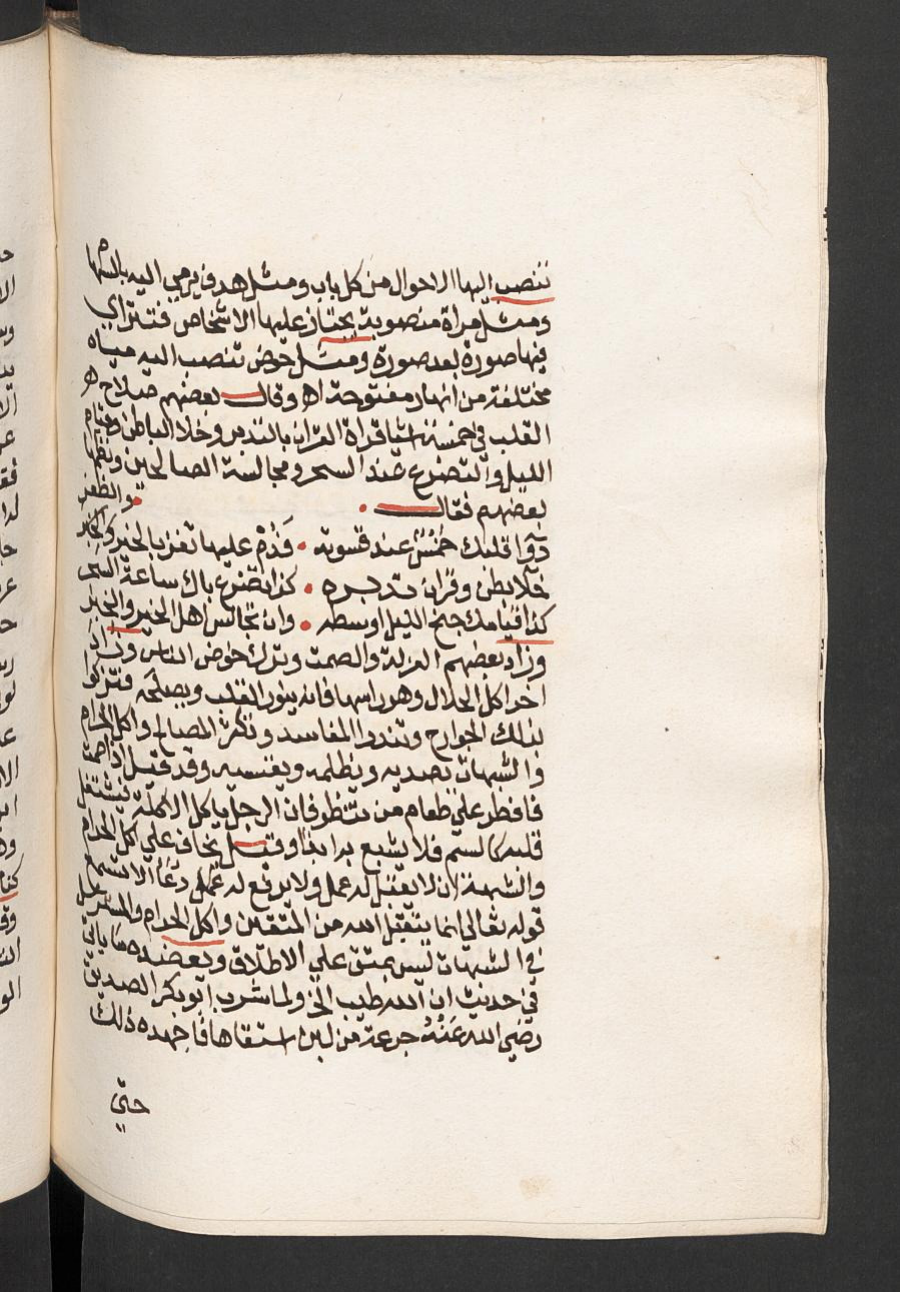 تنصب اليها الاحوال من كل باب ومثل هدف يرمي اليه بالسهام
ومثل مراة منصوبة يجتاز عليها الاشخاص فتتراي
فيها صورة بعد صورة ومثل حوض تنصب اليه مياه
مختلفة من انهار مفتوحة اه وقال بعضهم صلاح
القلب في خمسة اشيا قراة القران بالتدبر وخلا الباطن وقيام
الليل والتضرع عند السحر ومجالسة الصالحين ونظمها
بعضهم فقال
دوا قلبك خمس عند قسوته • فدم عليها تفز بالخير والظفر
خلا بطن وقران تدبره • كذا تضرع باك ساعة السحر
كذا قيامك جنح الليل اوسطه • وان تجالس اهل الخير والخبر
وزاد بعضهم العزلة والصمت وترك خوض الناس وزاد
اخر اكل الحلال وهو راسها فانه ينور القلب ويصلحه فتزكوا
بذلك الجوارح وتندرا المفاسد وتكثر المصالح واكل الحرام
والشبهات يصديه ويظلمه ويقسيه وقد قيل اذا صمت
فافطر علي طعام من تنظر فان الرجل ياكل الاكلة فيشتغل
قلبه كالسم فلا ينتفع به ابدا وقيل يخاف علي اكل الحرام
والشبهة ان لا يقبل له عمل ولا يرفع له عمل دعا الا تسمع
قوله تعالي انما يتقبل الله من المتقين واكل الحرام والمسترسل
في الشبهات ليس بمتق علي الاطلاق ويعضده ما ياتي
في حديث ان الله طيب الخ ولما شرب ابو بكر الصديق
رضي الله عنه جرعة من لبن استقاها فاجهده ذلك
حتي